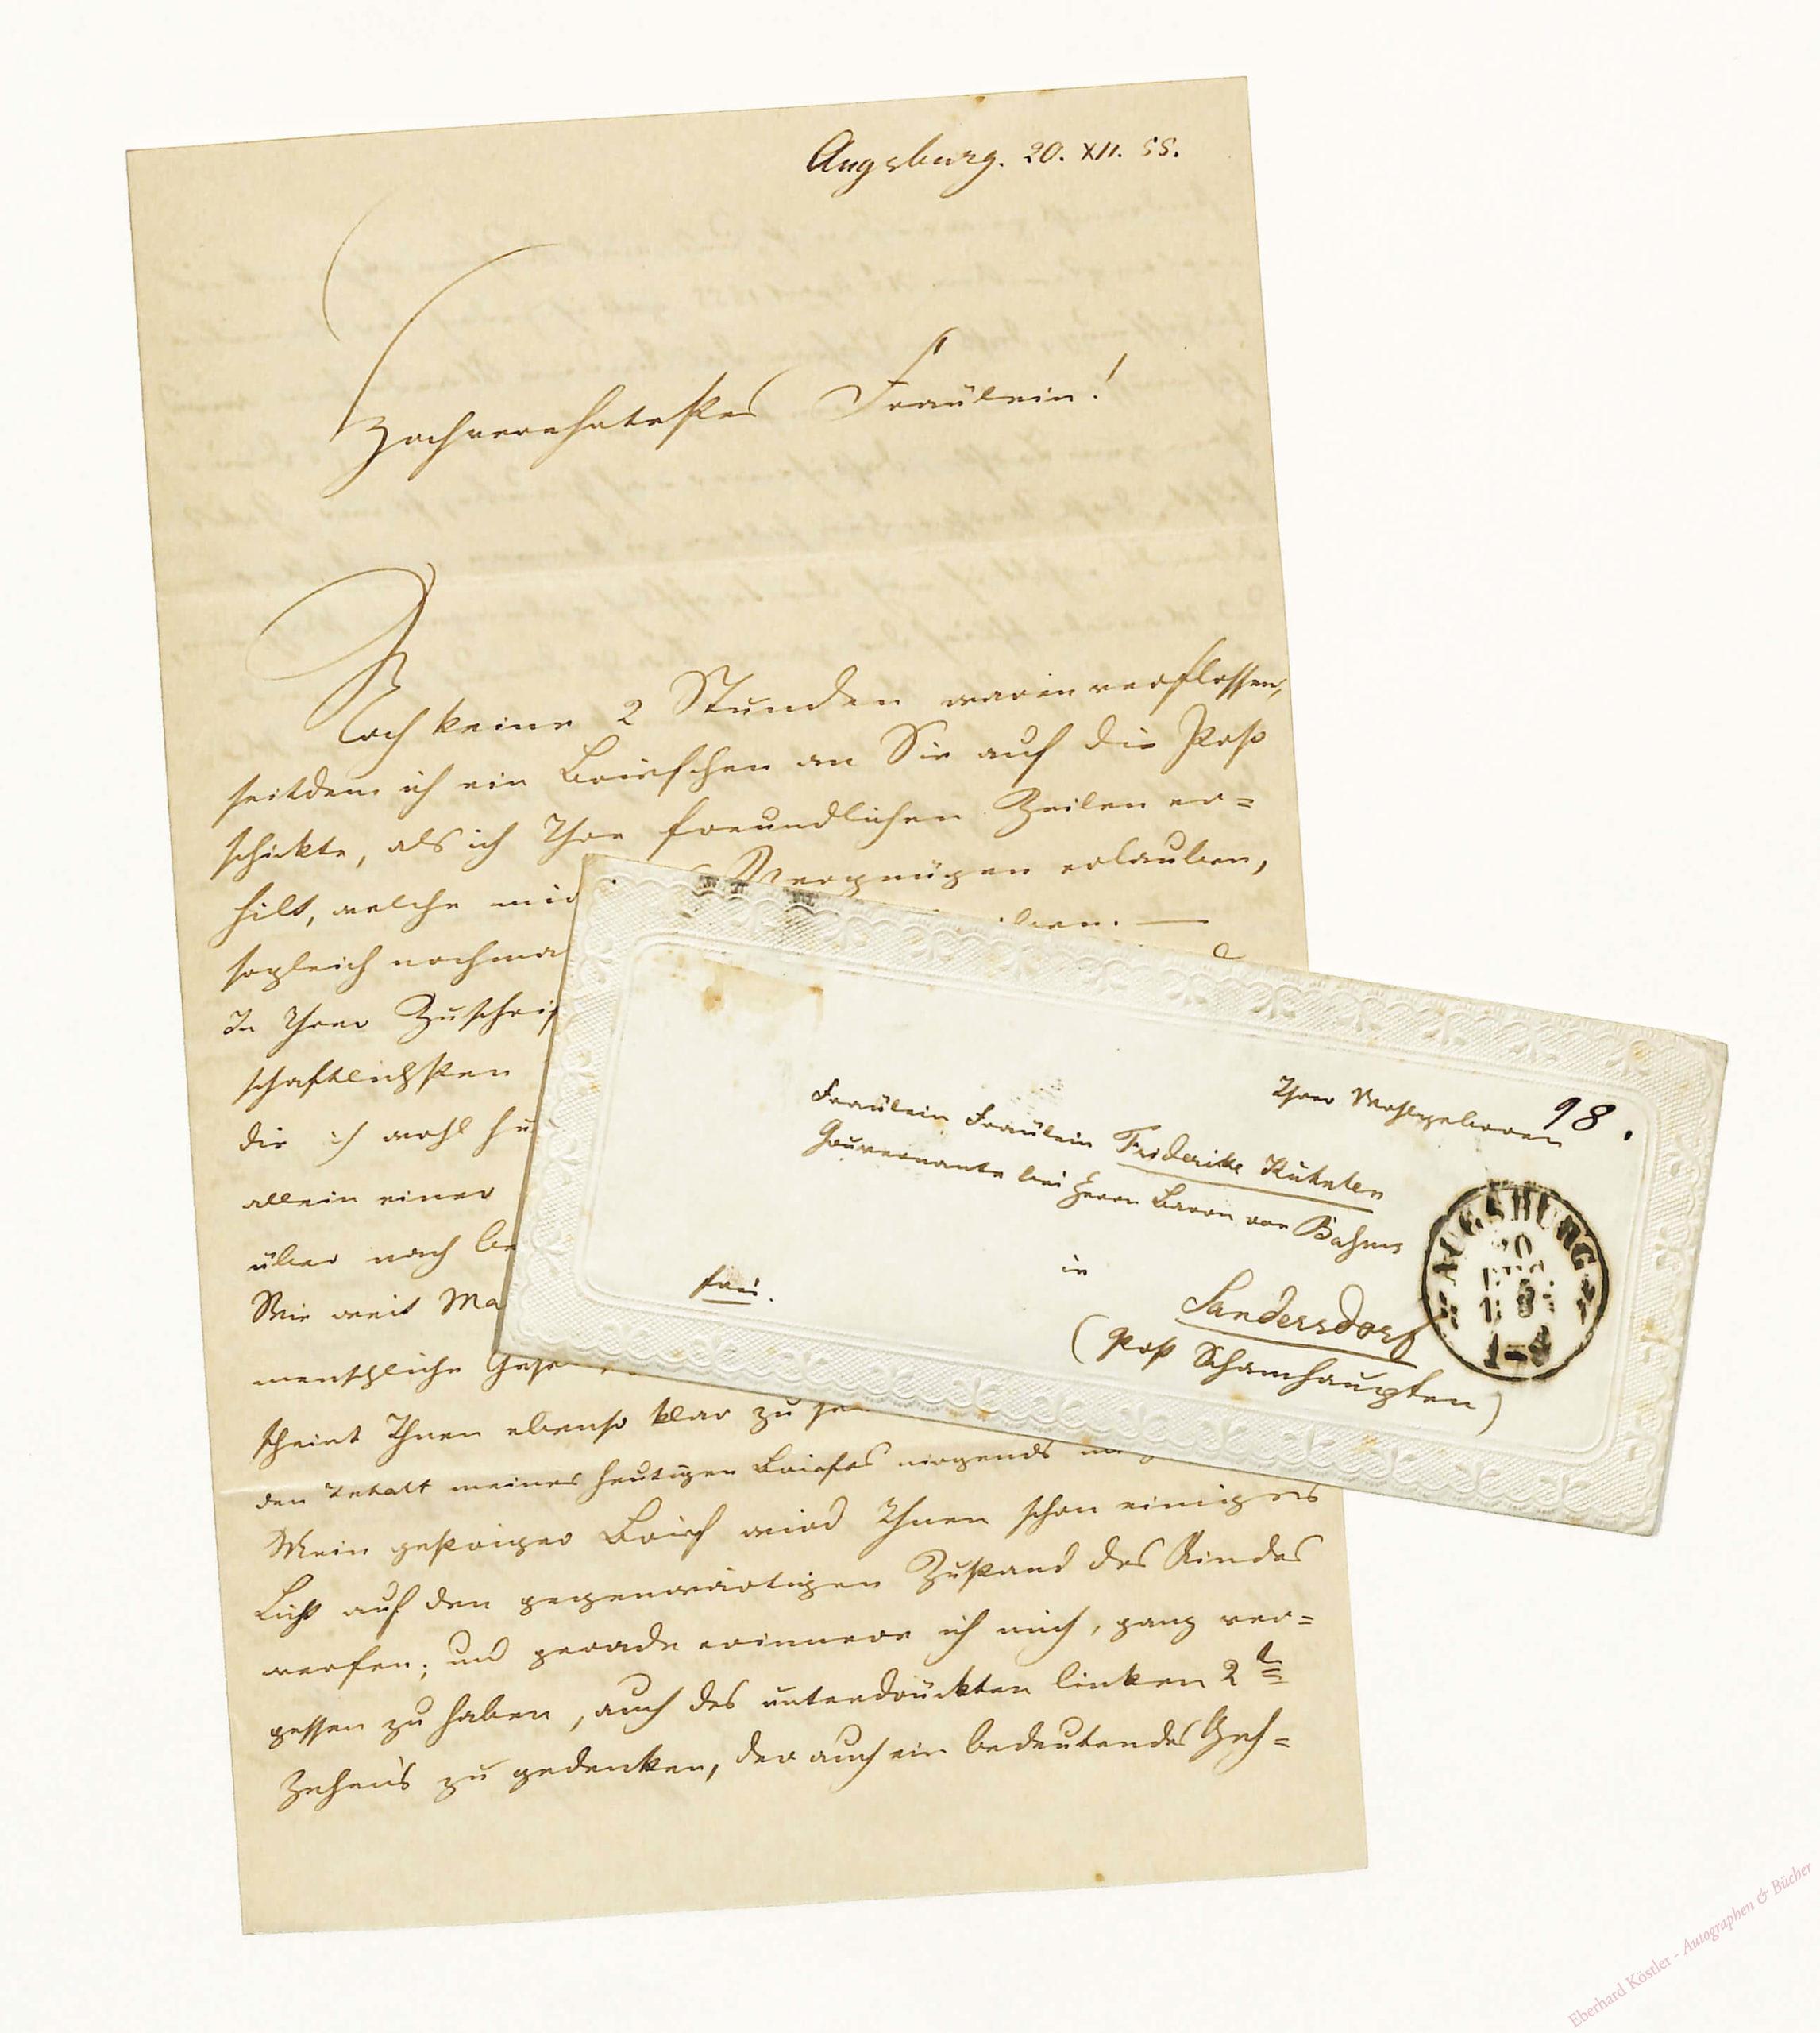 Augsburg. 20. XII. 55.
Hochverehrtestes Fräulein!
Noch keine 2 Stunden waren verflossen,
seitdem ich ein Briefchen an Sie auf die Post
schickte, als ich Ihre freundlichen Zeilen er=
hilt, welche mir Vergnügen erlauben,
sogleich nochma
In Ihrer Zuschrif
schaftlichsten
die ich wohl
allein einer
über nach
Wie weit Ma
menschliche
scheint Ihnen ebenso klar zu
den Inhalt meines heutigen Briefes nirgends
Mein gestriger Brief wird Ihnen schon einiges
Licht auf den gegenwärtigen Zustand des Kindes
werfen; und gerade erinnere ich mich, ganz ver=
gessen zu haben, auch des unterdrückten linken 2t
Zehen's zu gedenken, der auch ein bedeutendes Geh=
98.
Ihrer Wohlgeboren
Fräulein Fräulein Friderike
Gouvernante bei Herrn Baron von
in
Sandersdorf
(Post Schamhaupten)
frei.
AUGSBURG
20
DEC
Eberhard Köstler - Autographen & Bücher